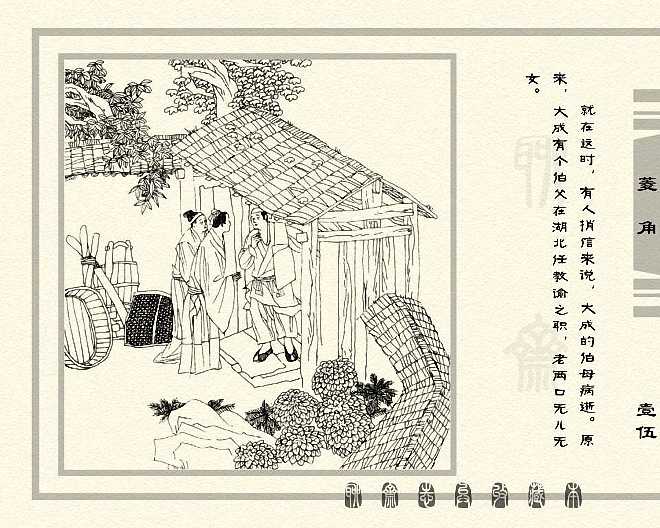 菱角
壹伍
就在这时，有人捎信来说，大成的伯母病逝。原
来，大成有个伯父在湖北任教谕之职，老两口无儿无
女。
聊斋志异珍藏本